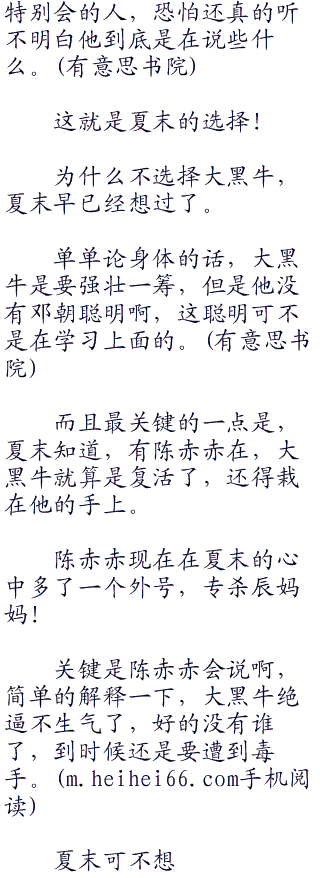 特别会的人，恐怕还真的听
不明白他到底是在说些什
么。(有意思书院)
这就是夏末的选择！
为什么不选择大黑牛，
夏末早已经想过了。
单单论身体的话，大黑
牛是要强壮一筹，但是他没
有邓朝聪明啊，这聪明可不
是在学习上面的。(有意思书
院)
而且最关键的一点是，
夏末知道，有陈赤赤在，大
黑牛就算是复活了，还得栽
在他的手上。
陈赤赤现在在夏末的心
中多了一个外号，专杀辰妈
妈！
关键是陈赤赤会说啊，
简单的解释一下，大黑牛绝
逼不生气了，好的没有谁
了，到时候还是要遭到毒
手。(m.heihei66.com手机阅
读)
夏末可不想